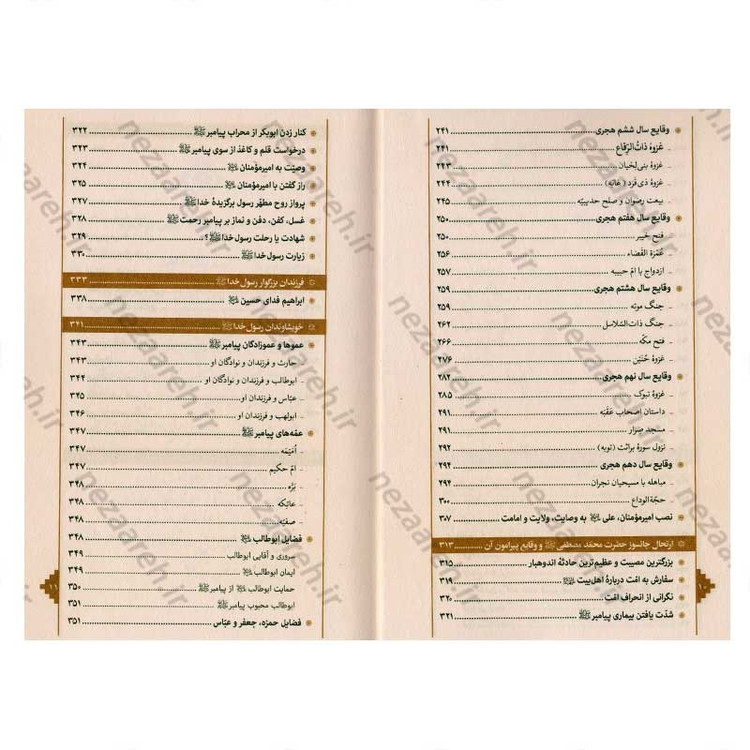 وقایع سال ششم هجری ........ ۲۴۱
غزوهٔ ذاتُ الرّقاع ........ ۲۴۱
غزوهٔ بنی‌لحیان ........ ۲۴۳
غزوهٔ ذی‌قَرَد (غابه) ........ ۲۴۴
بیعت رضوان و صلح حدیبیّه ........ ۲۴۵
وقایع سال هفتم هجری ........ ۲۵۰
فتح خیبر ........ ۲۵۰
عُمْرَةُ القَضاء ........ ۲۵۶
ازدواج با امّ حبیبه ........ ۲۵۷
وقایع سال هشتم هجری ........ ۲۵۹
جنگ موته ........ ۲۵۹
جنگ ذات السّلاسل ........ ۲۶۲
فتح مکّه ........ ۲۶۶
غزوهٔ حُنَین ........ ۲۷۶
وقایع سال نهم هجری ........ ۲۸۲
غزوهٔ تبوک ........ ۲۸۵
داستان اصحاب عَقَبَه ........ ۲۹۱
مسجد ضرار ........ ۲۹۱
نزول سورهٔ برائت (توبه) ........ ۲۹۲
وقایع سال دهم هجری ........ ۲۹۴
مباهله با مسیحیان نجران ........ ۲۹۴
حجّة الوداع ........ ۳۰۰
نصب امیرمؤمنان، علی به وصایت، ولایت و امامت ........ ۳۰۷
ارتحال جانسوز حضرت محمّد مصطفی ﷺ و وقایع پیرامون آن ........ ۳۱۳
بزرگترین مصیبت و عظیم‌ترین حادثهٔ اندوهبار ........ ۳۱۵
سفارش به امّت دربارهٔ اهل‌بیت ........ ۳۱۹
نگرانی از انحراف امّت ........ ۳۲۰
شدّت یافتن بیماری پیامبر ﷺ ........ ۳۲۱
کنار زدن ابوبکر از محراب پیامبر ﷺ ........ ۳۲۲
درخواست قلم و کاغذ از سوی پیامبر ﷺ ........ ۳۲۳
وصیّت به امیرمؤمنان ........ ۳۲۴
راز گفتن با امیرمؤمنان ........ ۳۲۵
پرواز روح مطهّر رسول برگزیدهٔ خدا ﷺ ........ ۳۲۷
غسل، کفن، دفن و نماز بر پیامبر رحمت ﷺ ........ ۳۲۸
شهادت یا رحلت رسول خدا ﷺ؟ ........ ۳۲۹
زیارت رسول خدا ﷺ ........ ۳۳۰
فرزندان بزرگوار رسول خدا ﷺ ........ ۳۳۳
ابراهیم فدای حسین ........ ۳۳۸
خویشاوندان رسول خدا ﷺ ........ ۳۴۱
عموها و عموزادگان پیامبر ﷺ ........ ۳۴۳
حارث و فرزندان و نوادگان او ........ ۳۴۳
ابوطالب و فرزندان و نوادگان او ........ ۳۴۴
عبّاس و فرزندان او ........ ۳۴۵
ابولهب و فرزندان او ........ ۳۴۶
عمّه‌های پیامبر ﷺ ........ ۳۴۷
اُمَیْمَه ........ ۳۴۷
امّ حکیم ........ ۳۴۷
بَرَّه ........ ۳۴۸
عاتکه ........ ۳۴۸
صفیّه ........ ۳۴۸
فضایل ابوطالب ........ ۳۴۸
سروری و آقایی ابوطالب ........ ۳۴۹
ایمان ابوطالب ........ ۳۴۹
حمایت ابوطالب از پیامبر ﷺ ........ ۳۵۰
ابوطالب محبوب پیامبر ﷺ ........ ۳۵۱
فضایل حمزه، جعفر و عبّاس ........ ۳۵۱
nezaareh.ir